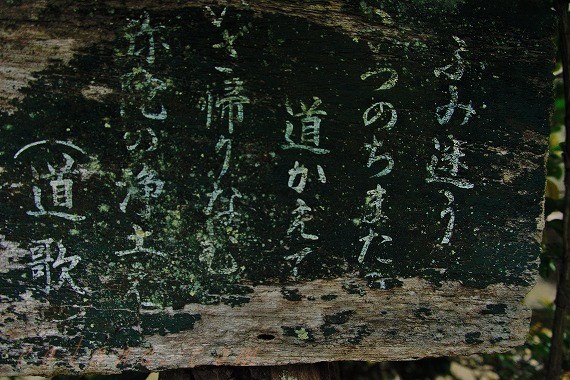 ふみ迷う
つのちまた
道かえて
帰りなむ
弥陀の浄土に
(道歌